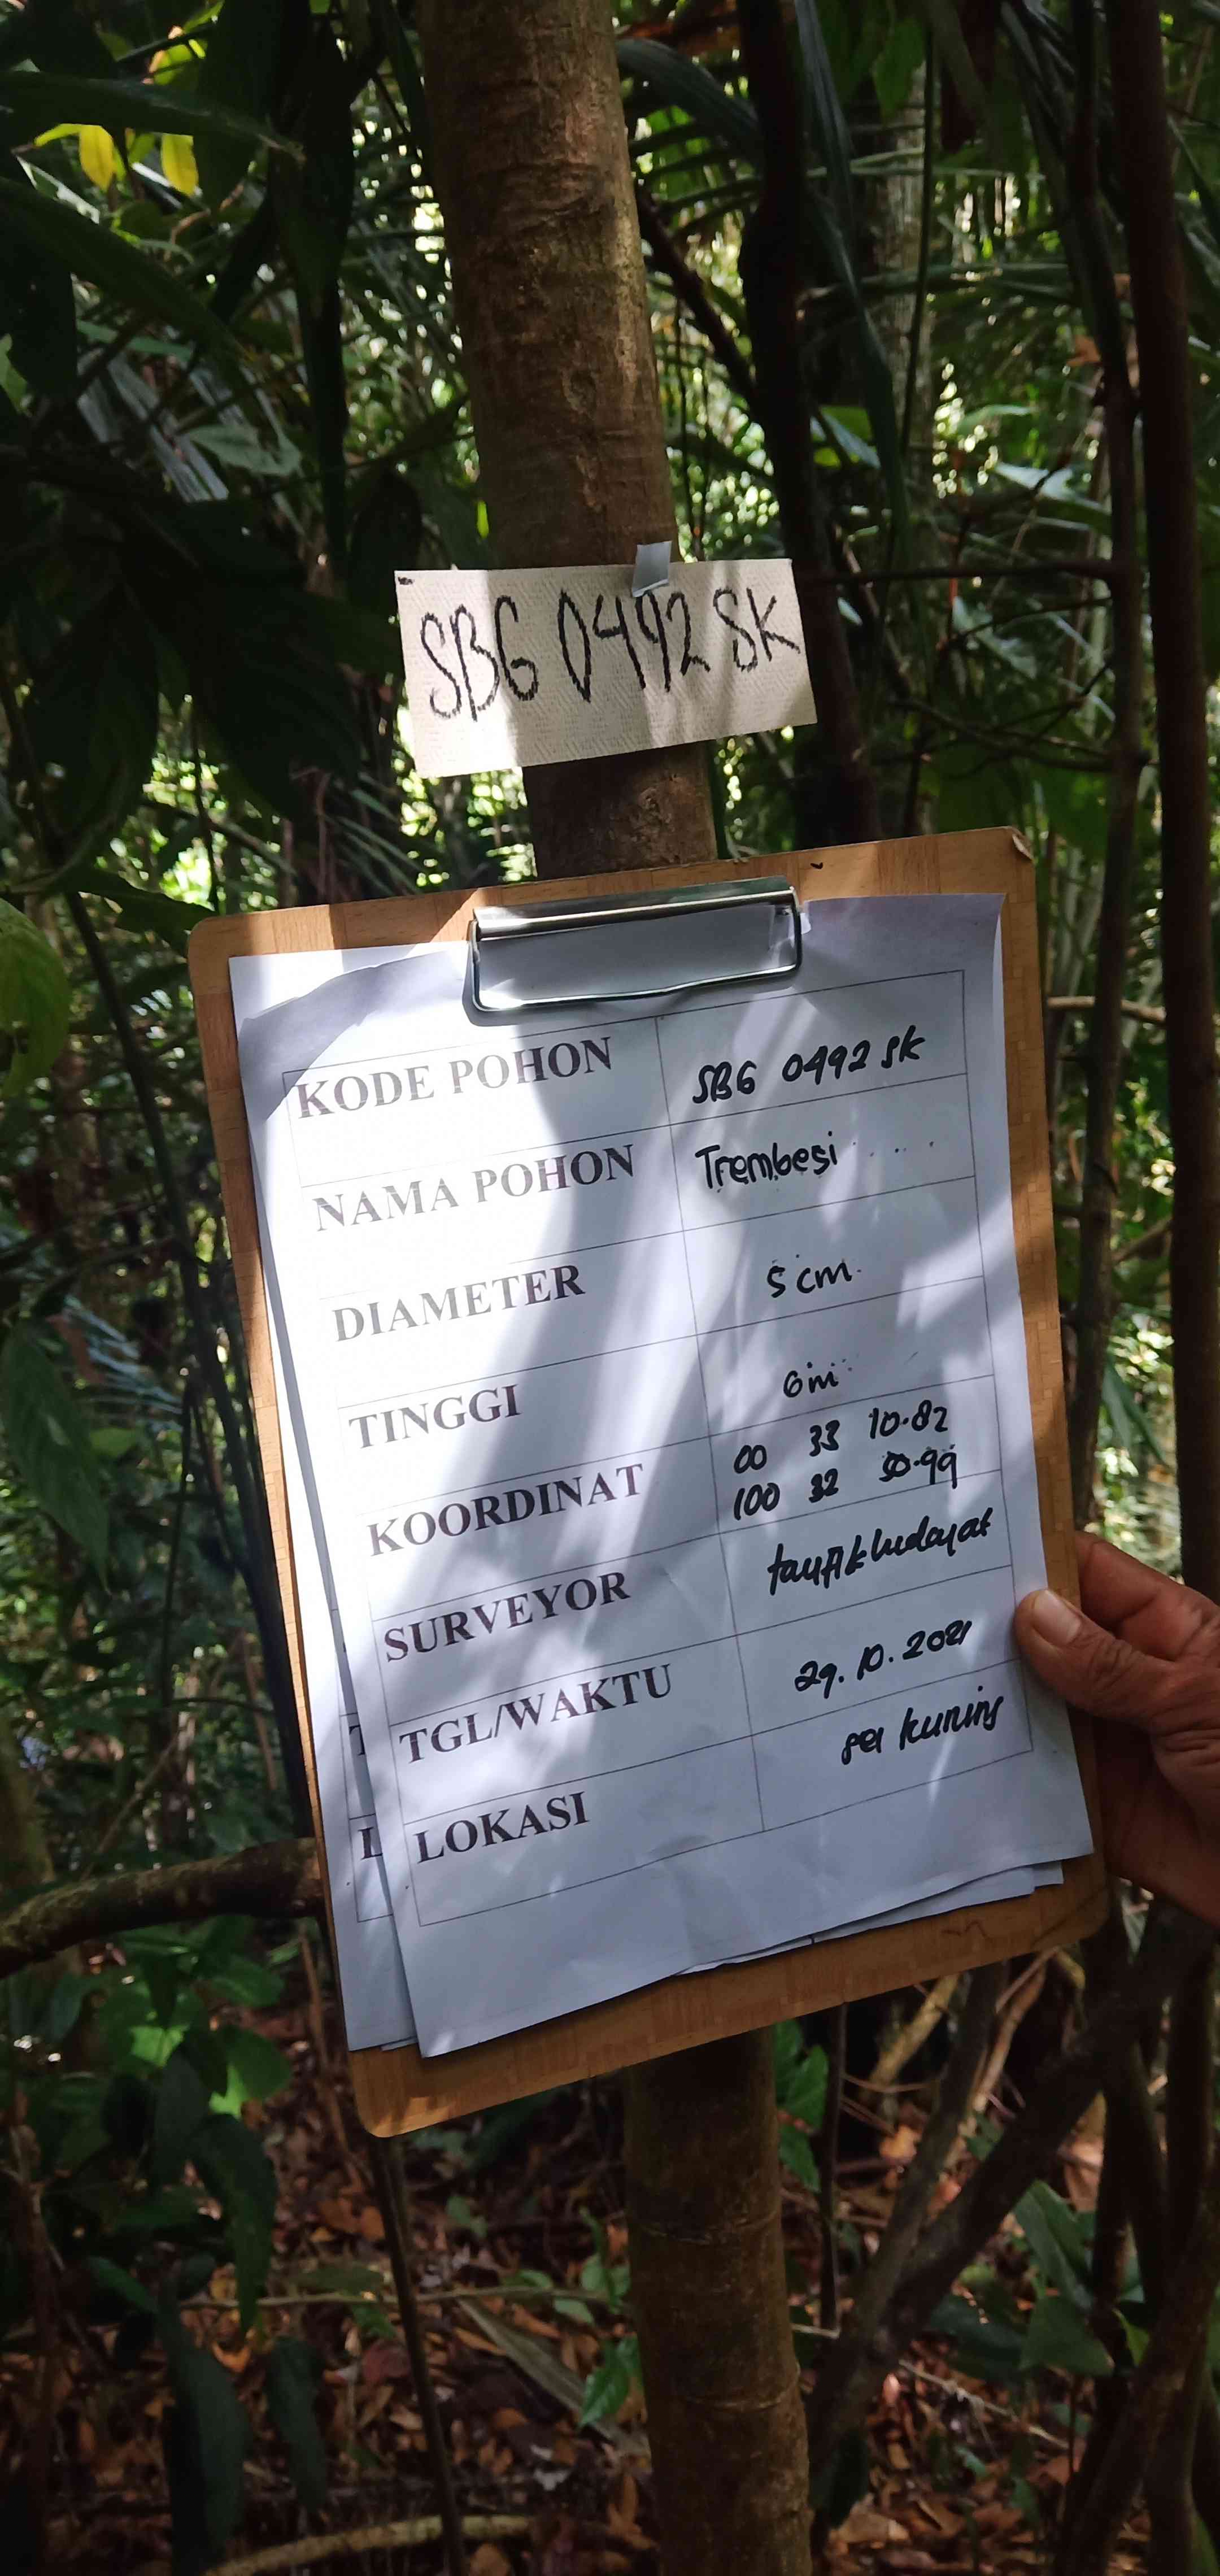 SBG 0492 SK
KODE POHON SBG 0492 SK
NAMA POHON Trembesi
DIAMETER 5 cm
TINGGI 6 m
KOORDINAT 00 33 10.82
100 32 50.99
SURVEYOR taufik hidayat
TGL/WAKTU 29.10.2021
LOKASI sei kuning